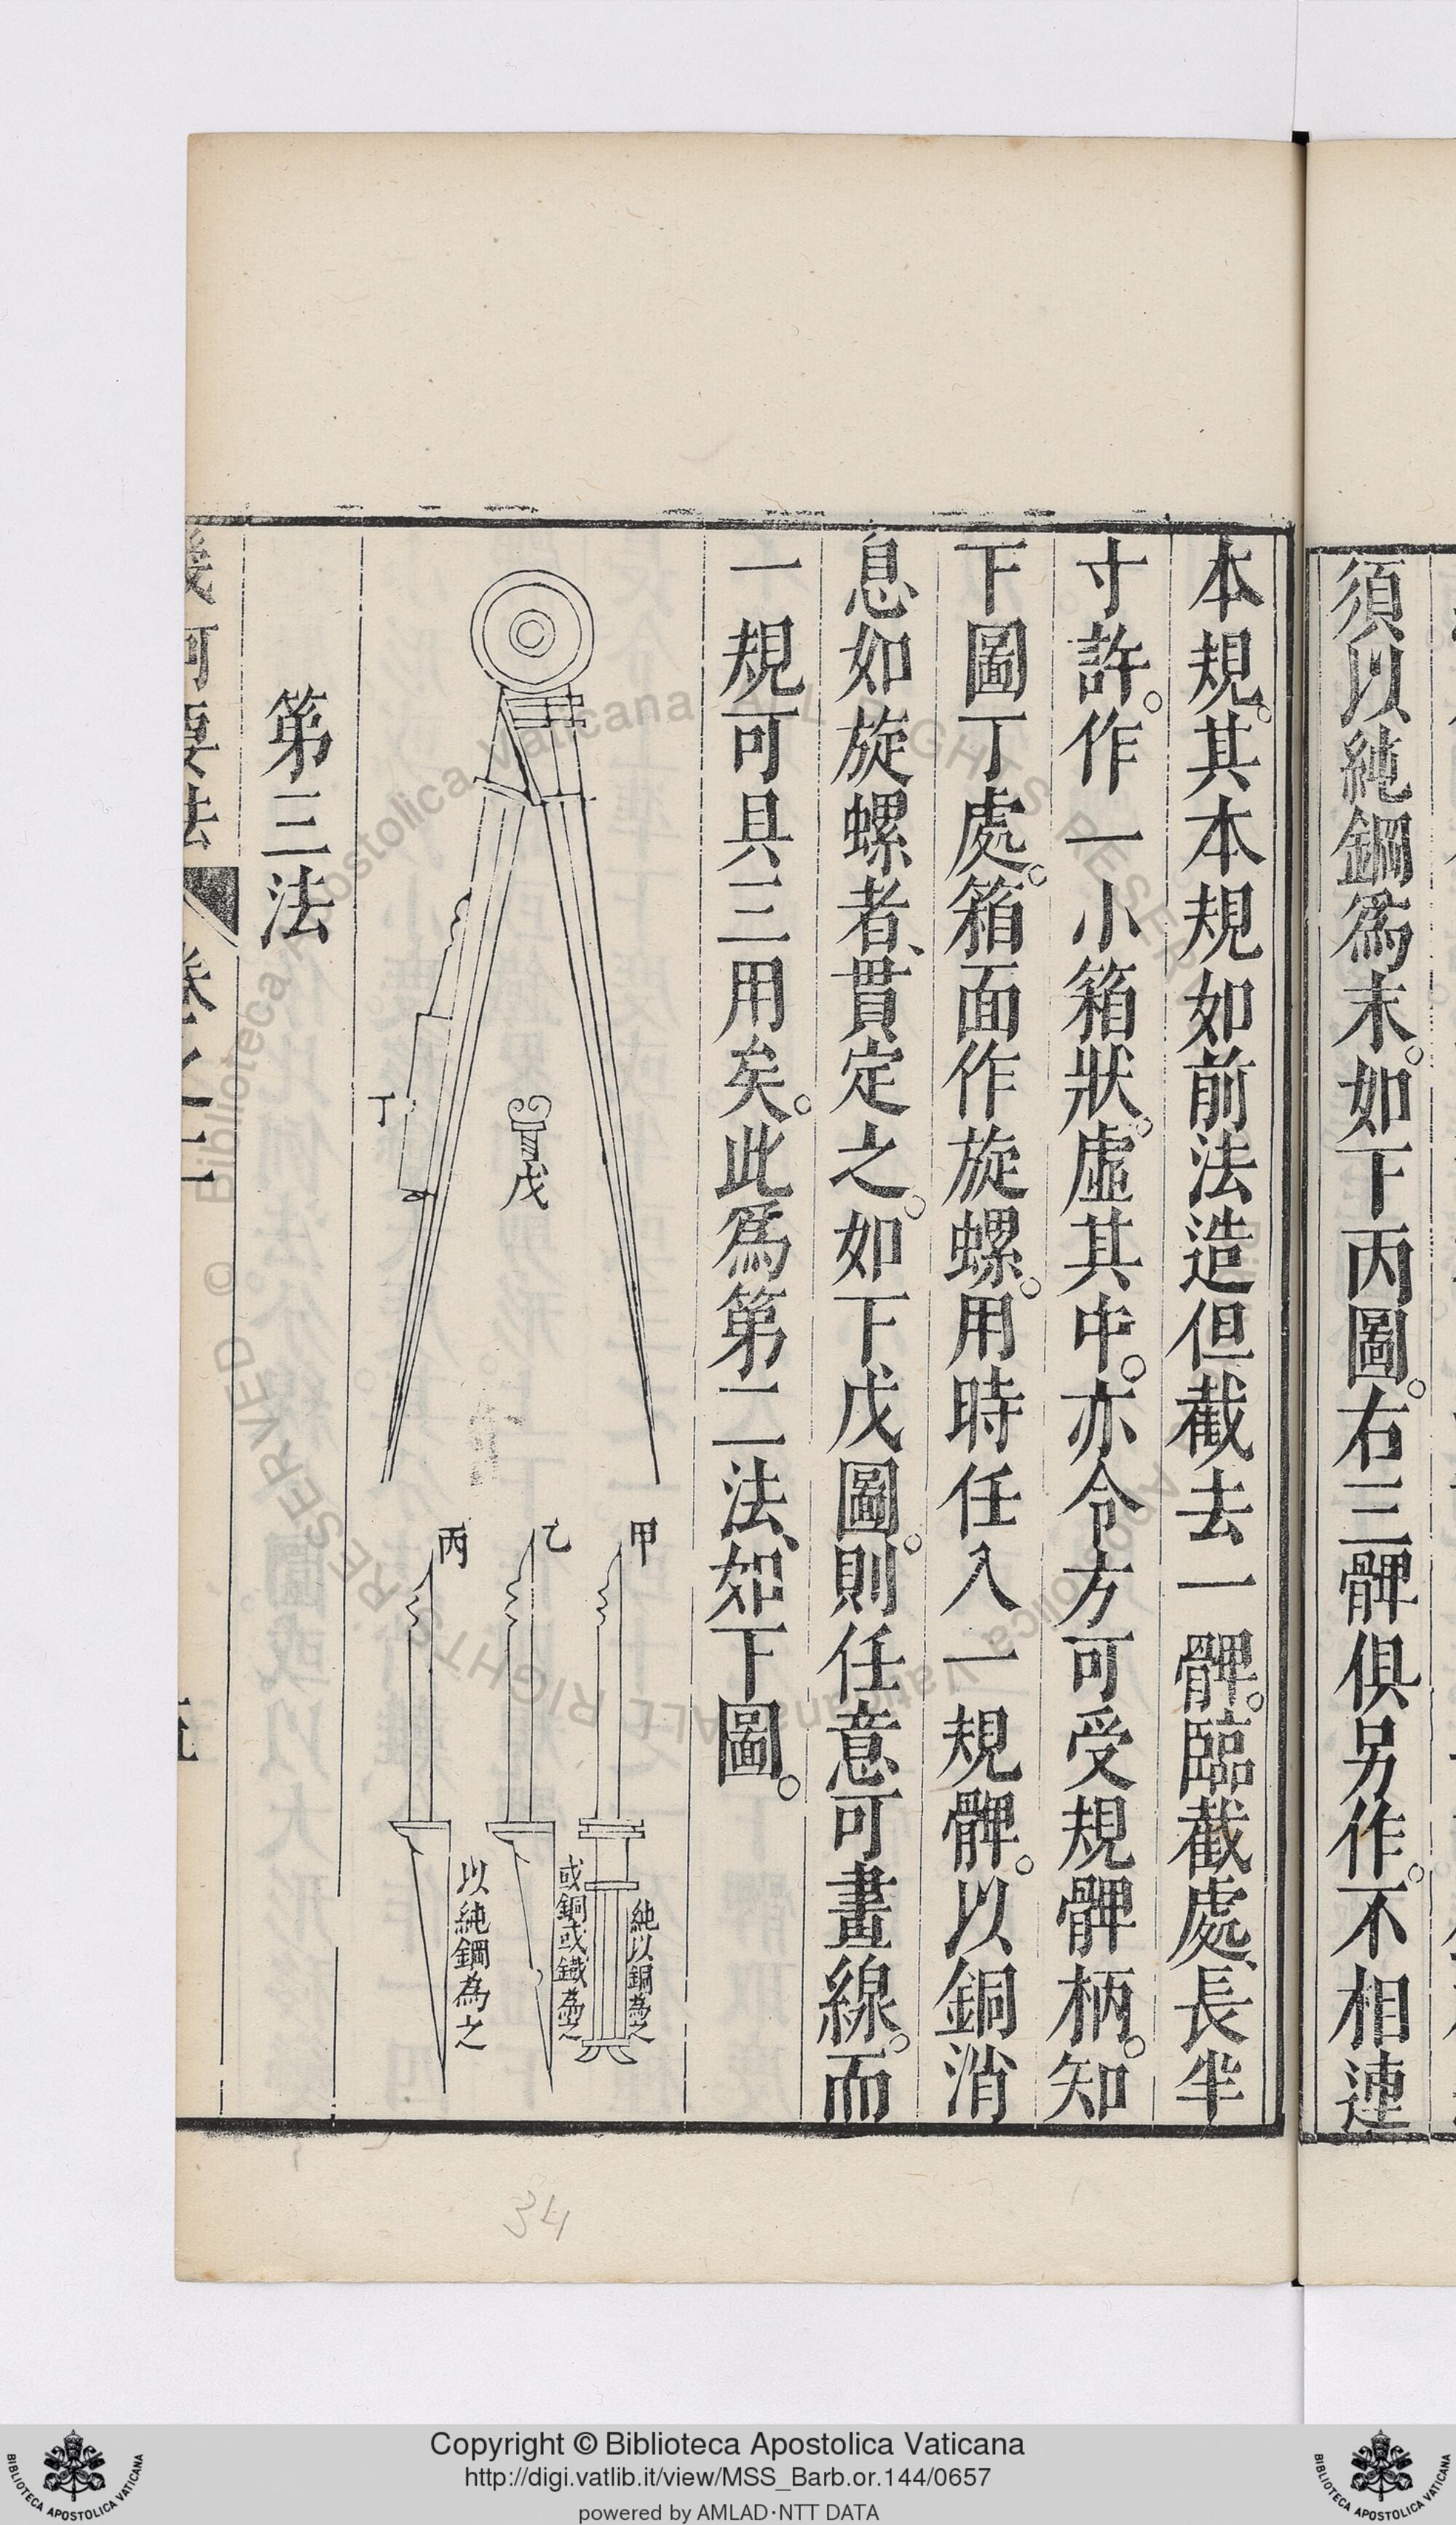 須以純鋼爲末。如下丙圖。右三髀俱另作。不相連
本規。其本規如前法造但截去一髀。臨截處、長半
寸許。作一小箱狀。虛其中。亦令方可受規髀柄。知
下圖丁處。箱面作旋螺。用時任入一規髀。以銅消
息如旋螺者、貫定之。如下戊圖。則任意可畫線。而
一規可具三用矣。此爲第二法、如下圖。
丁
戊
甲
純以銅為之
乙
或銅或鐵為之
丙
以純鋼為之
第三法
幾何要法
卷之二
五
34
Biblioteca Apostolica Vaticana ALL RIGHTS RESERVED © Biblioteca Apostolica Vaticana ALL RIGHTS RESERVED ©
Copyright © Biblioteca Apostolica Vaticana
http://digi.vatlib.it/view/MSS_Barb.or.144/0657
powered by AMLAD·NTT DATA
BIBLIOTECA APOSTOLICA VATICANA
BIBLIOTECA APOSTOLICA VATICANA